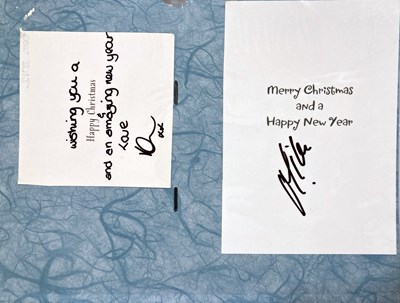 wishing you a
Happy Christmas
&
and an amazing new year
love
Merry Christmas
and a
Happy New Year